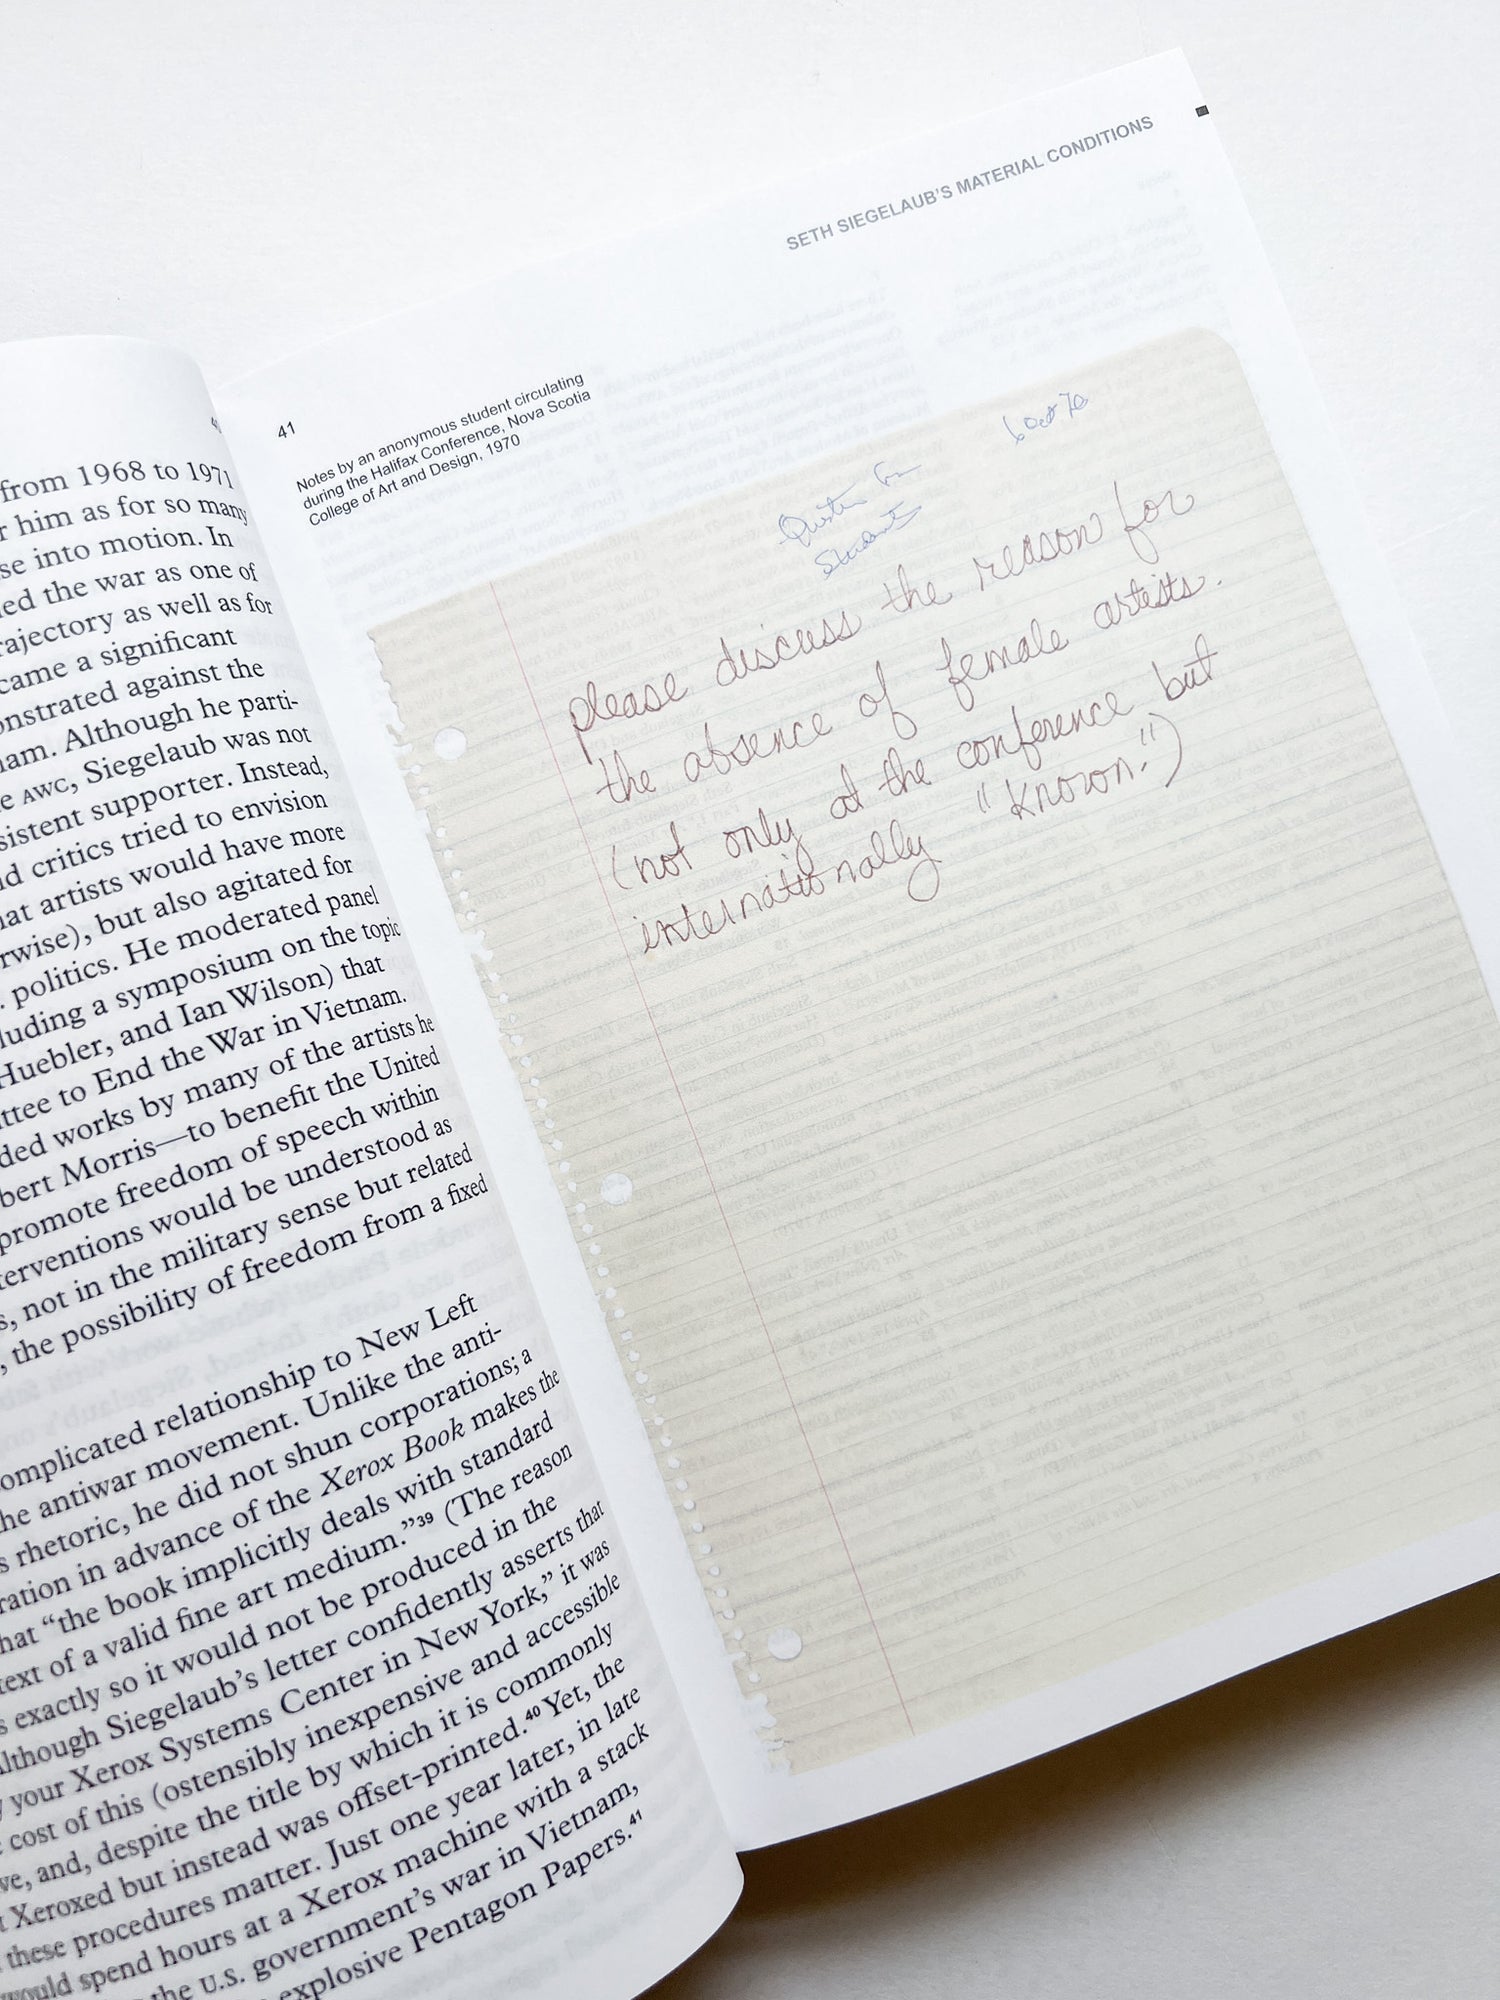 from 1968 to 1971
r him as for so many
se into motion. In
ed the war as one of
rajectory as well as for
came a significant
onstrated against the
nam. Although he parti-
e AWC, Siegelaub was not
sistent supporter. Instead,
d critics tried to envision
hat artists would have more
rwise), but also agitated for
. politics. He moderated panel
luding a symposium on the topic
Huebler, and Ian Wilson) that
ttee to End the War in Vietnam.
ded works by many of the artists he
bert Morris—to benefit the United
promote freedom of speech within
terventions would be understood as
s, not in the military sense but related
, the possibility of freedom from a fixed
omplicated relationship to New Left
he antiwar movement. Unlike the anti-
s rhetoric, he did not shun corporations; a
ration in advance of the Xerox Book makes the
hat “the book implicitly deals with standard
text of a valid fine art medium.”39 (The reason
s exactly so it would not be produced in the
lthough Siegelaub’s letter confidently asserts that
y your Xerox Systems Center in New York,” it was
cost of this (ostensibly inexpensive and accessible
ve, and, despite the title by which it is commonly
t Xeroxed but instead was offset-printed.40 Yet, the
these procedures matter. Just one year later, in late
would spend hours at a Xerox machine with a stack
the U.S. government’s war in Vietnam,
explosive Pentagon Papers.41
SETH SIEGELAUB’S MATERIAL CONDITIONS
41
Notes by an anonymous student circulating
during the Halifax Conference, Nova Scotia
College of Art and Design, 1970
6 Oct 70
Question from
Students
please discuss the reason for
the absence of female artists.
(not only at the conference but
internationally "known.")